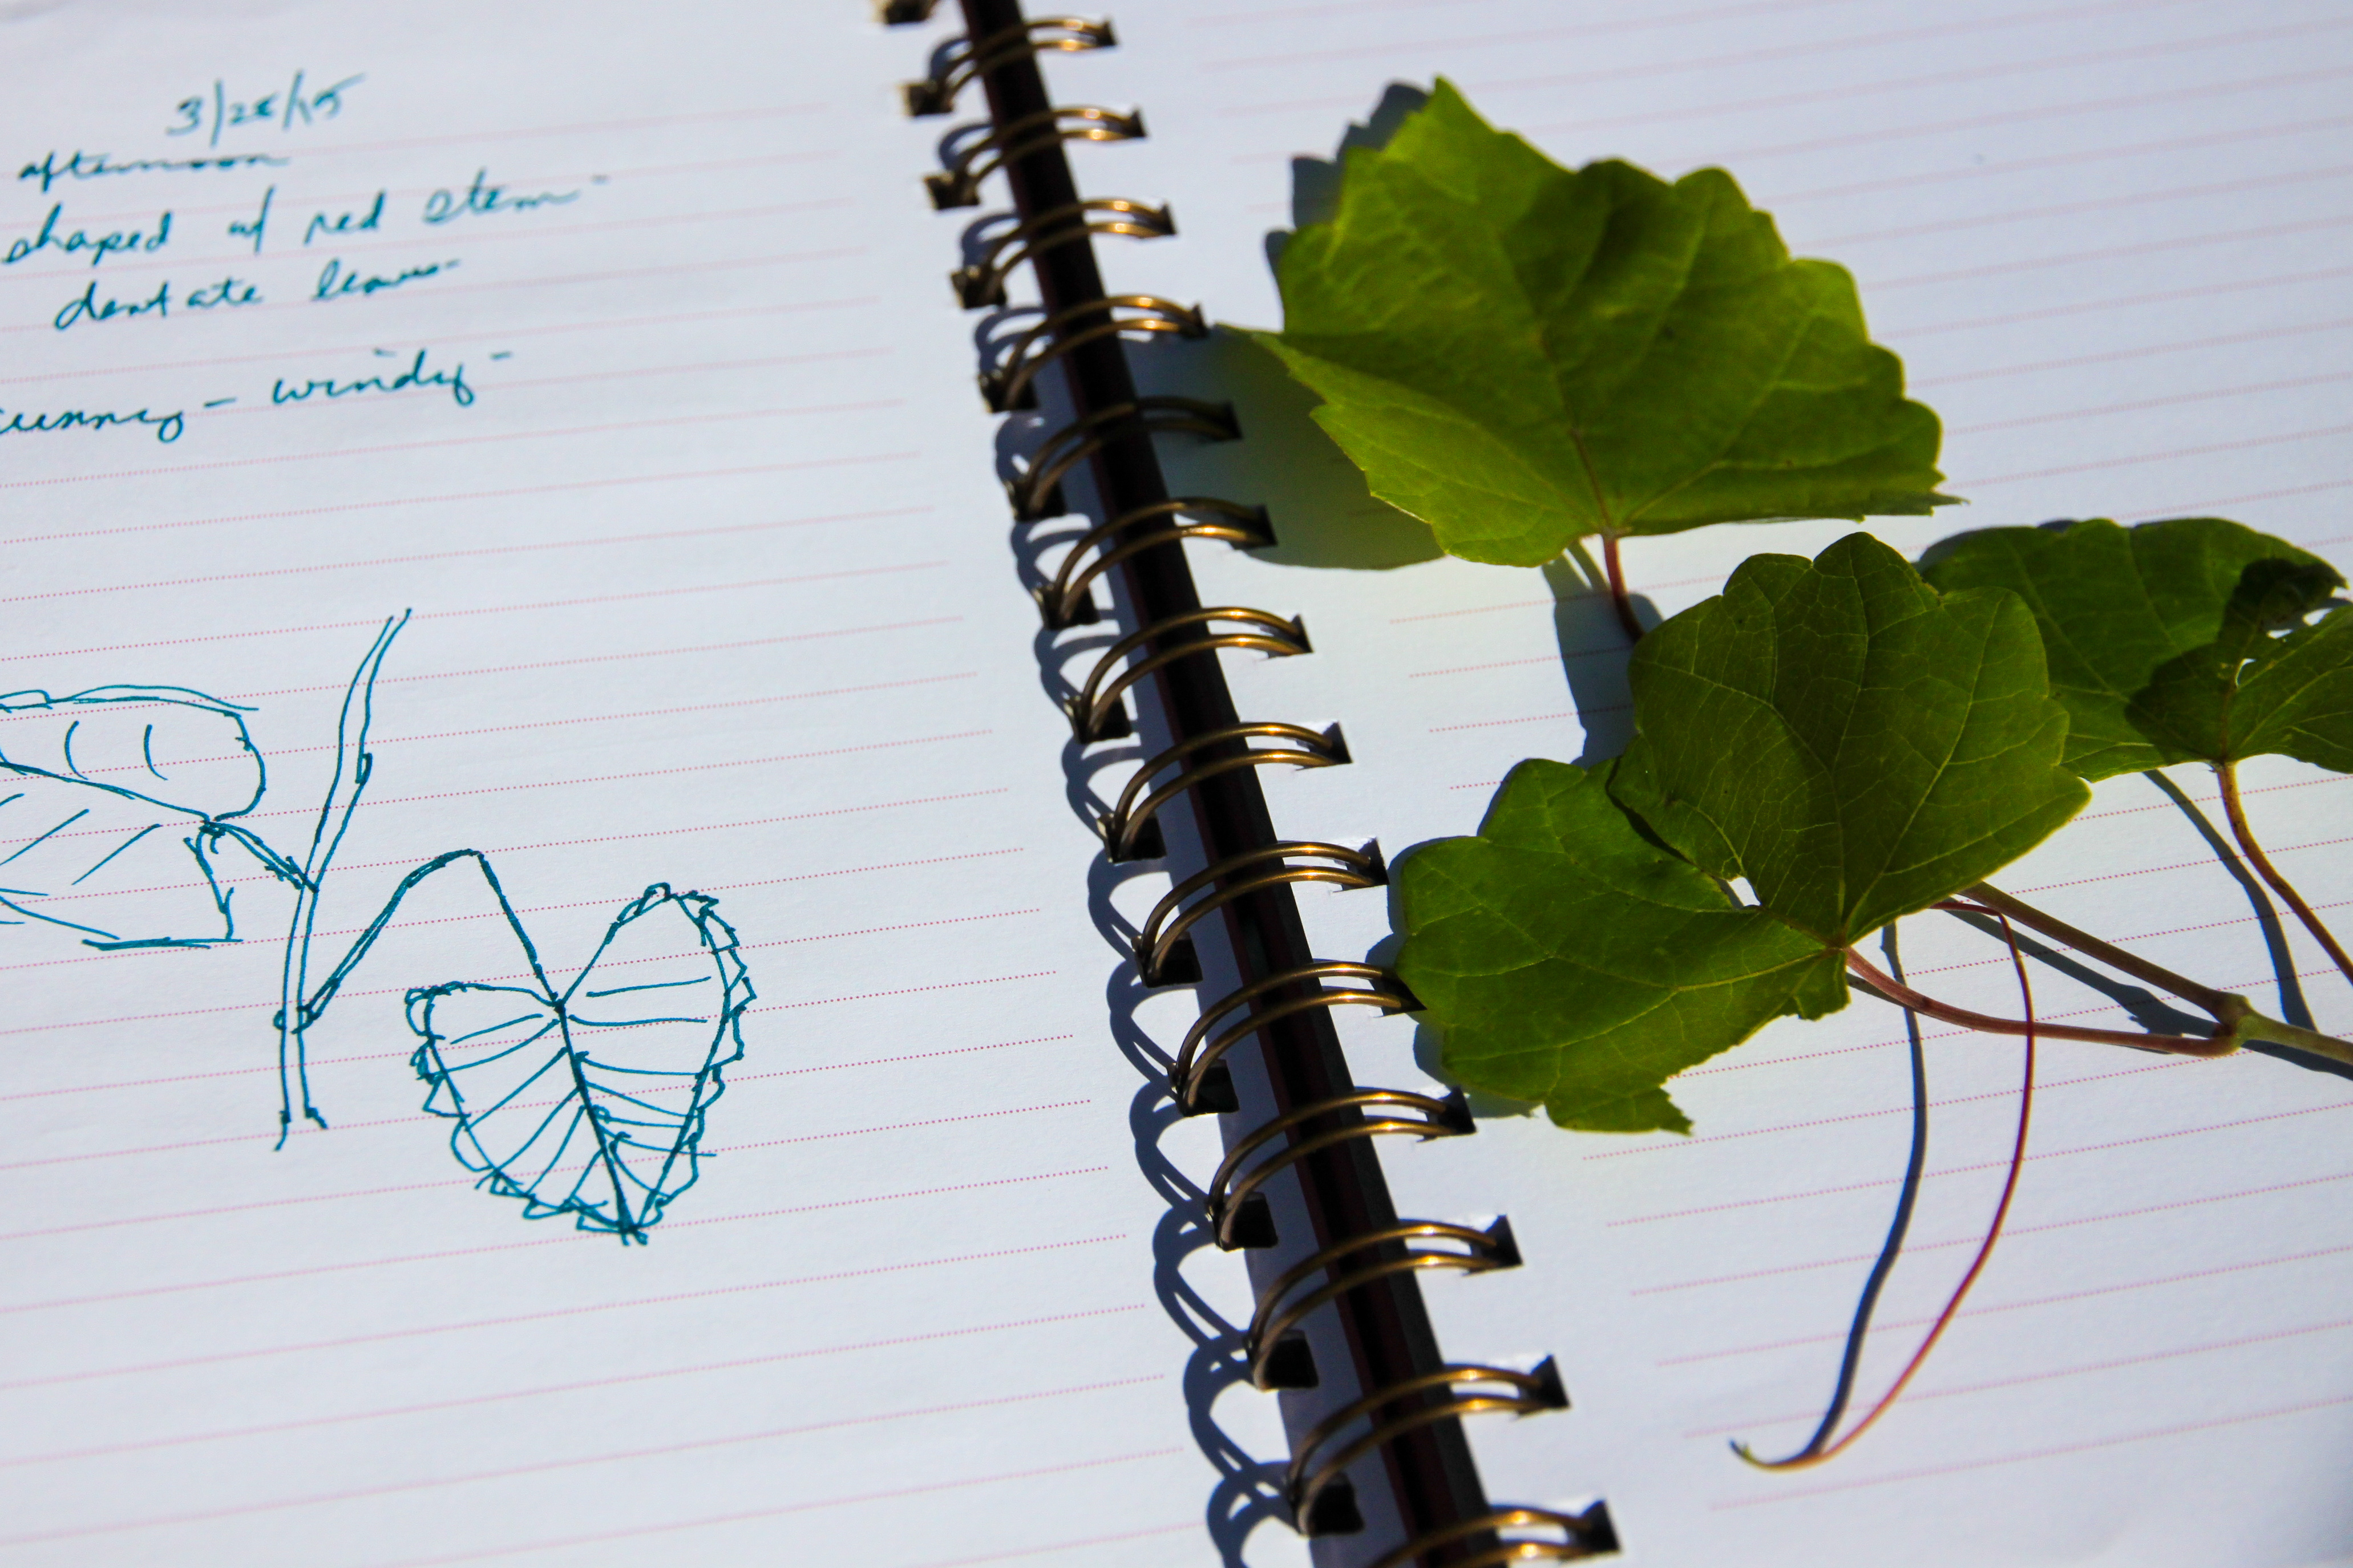 3/28/15
afternoon
shaped w/ red stem -
dentate leaves
sunny - windy -